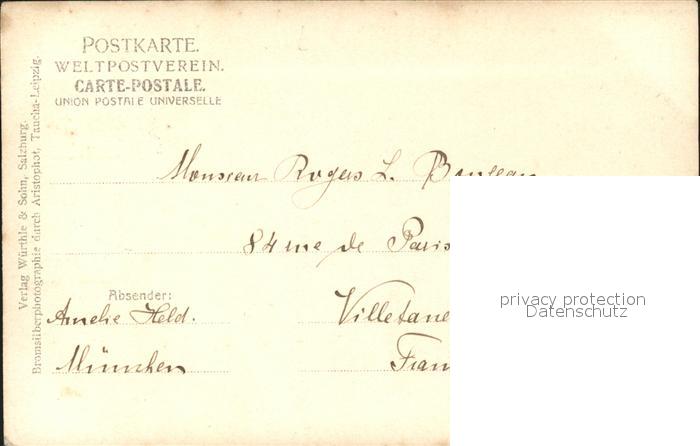 POSTKARTE.
WELTPOSTVEREIN.
CARTE-POSTALE.
UNION POSTALE UNIVERSELLE
Verlag Würthle & Sohn, Salzburg.
Bromsilberphotographie durch Aristophot, Taucha-Leipzig.
Monsieur L.
84 rue de Paris
Absender:
Amelie Held.
München
Villetane
Fran
privacy protection
Datenschutz